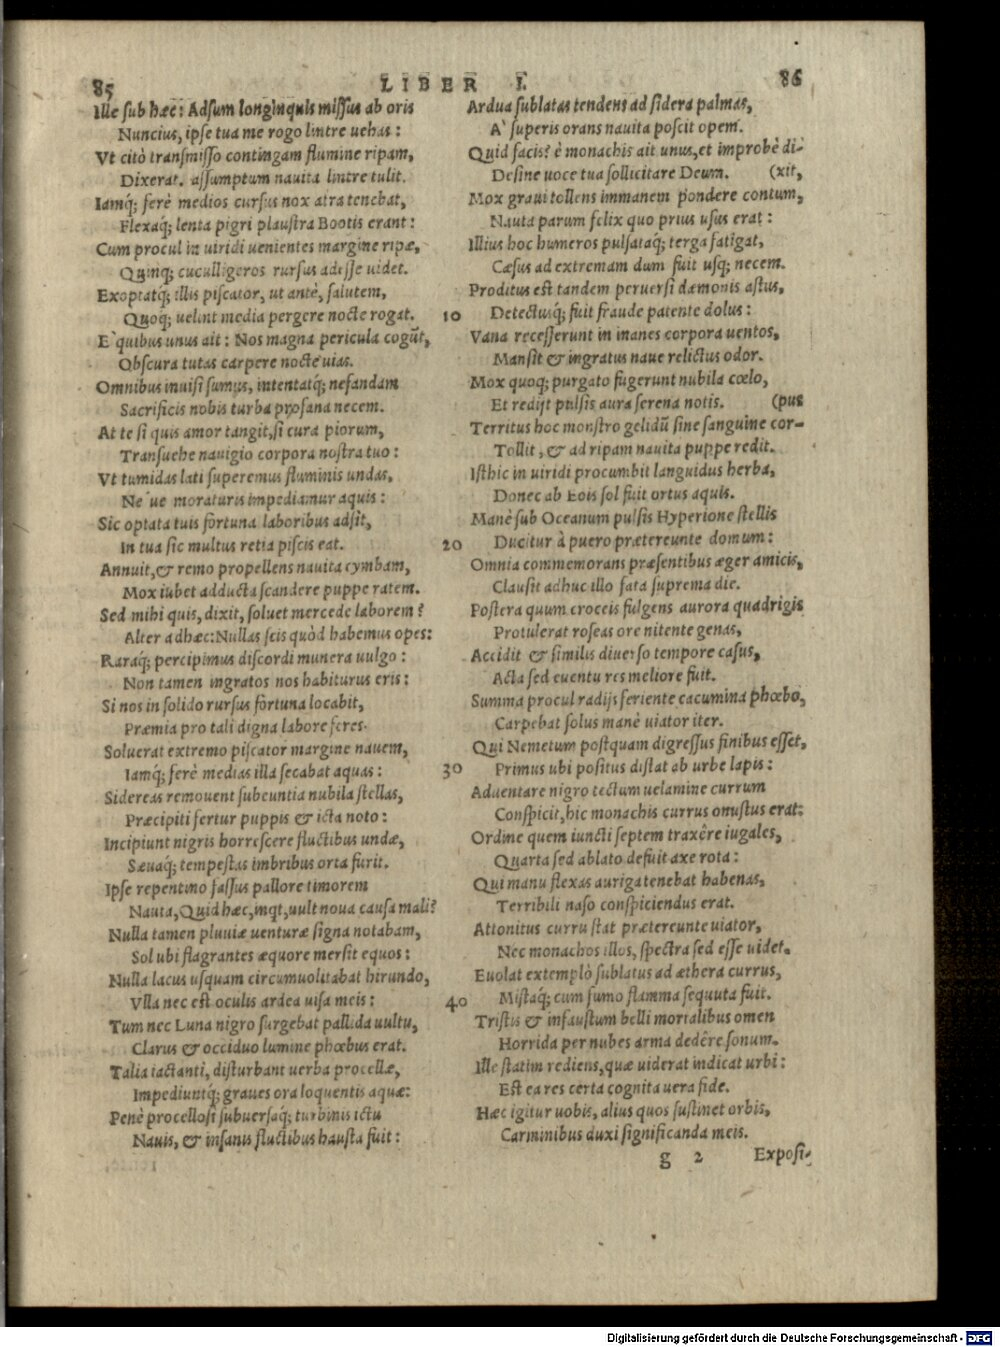 85
LIBER I.
86
Ille sub hæc: Adsum longinquis missus ab oris
Nuncius, ipse tua me rogo lintre uehas:
Vt citò transmisso contingam flumine ripam,
Dixerat. assumptum nauita lintre tulit.
Iamq; ferè medios cursus nox atra tenebat,
Flexaq; lenta pigri plaustra Bootis erant:
Cum procul in uiridi uenientes margine ripæ,
Quinq; cuculligeros rursus adesse uidet.
Exoptatq; illis piscator, ut antè, salutem,
Quoq; uelint media pergere nocte rogat.
E`quibus unus ait: Nos magna pericula cogūt,
Obscura tutas carpere nocte uias.
Omnibus inuisi sumus, intentatq; nefandam
Sacrificis nobis turba profana necem.
At te si quis amor tangit, si cura piorum,
Transuehe nauigio corpora nostra tuo:
Vt tumidas lati superemus fluminis undas,
Ne´ue moraturis impediamur aquis:
Sic optata tuis fortuna laboribus adsit,
In tua sic multus retia piscis eat.
Annuit, & remo propellens nauita cymbam,
Mox iubet adducta scandere puppe ratem.
Sed mihi quis, dixit, soluet mercede laborem?
Alter ad hæc: Nullas scis quòd habemus opes:
Raraq; percipimus discordi munera uulgo:
Non tamen ingratos nos habiturus eris:
Si nos in solido rursus fortuna locabit,
Præmia pro tali digna labore feres.
Soluerat extremo piscator margine nauem,
Iamq; ferè medias illa secabat aquas:
Sidereas remouent subeuntia nubila stellas,
Præcipiti fertur puppis & icta noto:
Incipiunt nigris horrescere fluctibus undæ,
Sæuaq; tempestas imbribus orta furit.
Ipse repentino fassus pallore timorem
Nauta, Quid hæc, inqt, uult noua causa mali?
Nulla tamen pluuiæ uenturæ signa notabam,
Sol ubi flagrantes æquore mersit equos:
Nulla lacus usquam circumuolitabat hirundo,
Vlla nec est oculis ardea uisa meis:
Tum nec Luna nigro surgebat pallida uultu,
Clarus & occiduo lumine phœbus erat.
Talia iactanti, disturbant uerba procellæ,
Impediuntq; graues ora loquentis aquæ:
Penè procellosi subuersaq; turbinis ictu
Nauis, & insanis fluctibus hausta fuit:
Ardua sublatas tendens ad sidera palmas,
A` superis orans nauita poscit opem.
Quid facis? è monachis ait unus, et improbè di-
Desine uoce tua sollicitare Deum. (xit,
Mox graui tollens immanem pondere contum,
Nauta parum felix quo prius usus erat:
Illius hoc humeros pulsatq; terga fatigat,
Cæsus ad extremam dum fuit usq; necem.
Proditus est tandem peruersi dæmonis astus,
10 Detectusq; fuit fraude patente dolus:
Vana recesserunt in inanes corpora uentos,
Mansit & ingratus naue relictus odor.
Mox quoq; purgato fugerunt nubila cœlo,
Et redijt pulsis aura serena notis. (pus
Territus hoc monstro gelidū sine sanguine cor-
Tollit, & ad ripam nauita puppe redit.
Isthic in uiridi procumbit languidus herba,
Donec ab Eois sol fuit ortus aquis.
Manè sub Oceanum pulsis Hyperione stellis
20 Ducitur à puero prætereunte domum:
Omnia commemorans præsentibus æger amicis,
Clausit adhuc illo fata suprema die.
Postera quum croceis fulgens aurora quadrigis
Protulerat roseas ore nitente genas,
Accidit & similis diuerso tempore casus,
Acta sed euentu res meliore fuit.
Summa procul radijs feriente cacumina phœbo,
Carpebat solus manè uiator iter.
Qui Nemetum postquam digressus finibus esset,
30 Primus ubi positus distat ab urbe lapis:
Aduentare nigro tectum uelamine currum
Conspicit, hic monachis currus onustus erat:
Ordine quem iuncti septem traxêre iugales,
Quarta sed ablato defuit axe rota:
Qui manu flexas auriga tenebat habenas,
Terribili naso conspiciendus erat.
Attonitus curru stat prætereunte uiator,
Nec monachos illos, spectra sed esse uidet.
Euolat extemplò sublatus ad æthera currus,
40 Mistaq; cum fumo flamma sequuta fuit.
Tristis & infaustum belli mortalibus omen
Horrida per nubes arma dedêre sonum.
Ille statim rediens, quæ uiderat indicat urbi:
Est ea res certa cognita uera fide.
Hæc igitur uobis, alius quos sustinet orbis,
Carminibus duxi significanda meis.
g 2 Exposi-
Digitalisierung gefördert durch die Deutsche Forschungsgemeinschaft - DFG